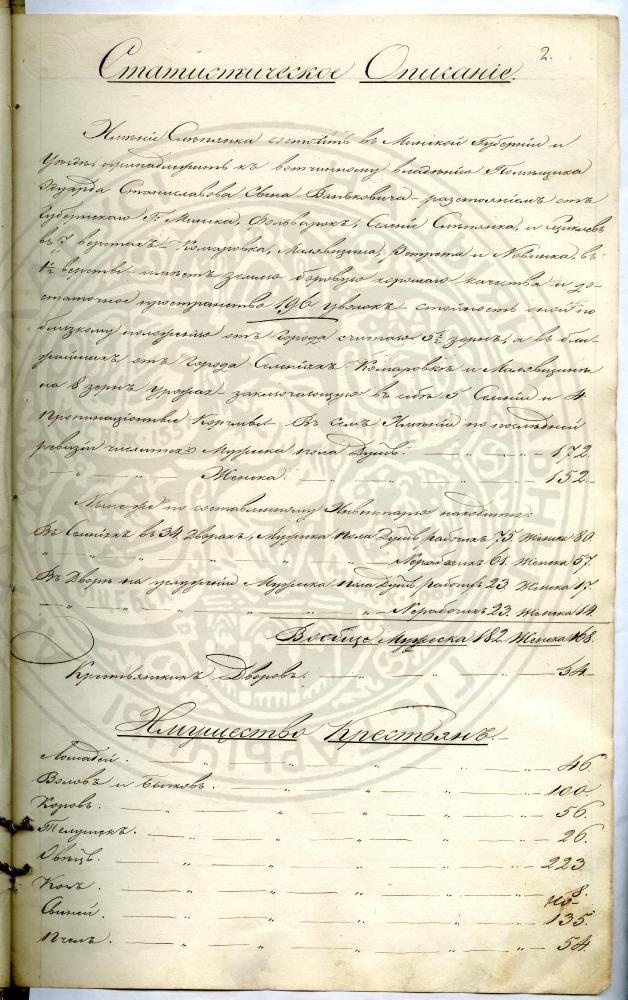 2.
Статистическое Описаніе.
Имѣніе Слѣпянка состоитъ въ Минской Губерніи и
Уѣздѣ, принадлежитъ къ вотчинному владѣнію Помѣщика
Эдуарда Станиславова Сына Ваньковича – разстояніемъ отъ
Губернскаго Г. Минска, Фольварокъ, Селеніе Слѣпянка, и
въ 7 верстахъ – Комаровка, Малявщина, и въ
1½ верстѣ – имѣетъ землю боровую хорошаго качества и до-
статочное пространство 196 уволокъ – стоимость оной по
близкому положенію отъ Города считаю 5½ зеренъ, а въ бли-
жайшихъ отъ Города Селеніяхъ Комаровкѣ и Малявщинѣ
на 8 зеренъ урожая – заключающую въ себѣ 5 Селеній и 4
Пропинаціонные Корчмы – Въ семъ Имѣніи по послѣдней
ревизіи числится Мужеска пола Душъ. 172.
" " Женска. 152.
Нынѣ же по составленному Инвентарю находится:
Въ Селеніяхъ въ 34 Дворахъ, Мужеска пола Душъ рабочихъ 75. Женска 80.
" " " " Нерабочихъ 61. Женска 57.
Въ Дворѣ на услуженіи Мужеска пола Душъ рабочихъ 23. Женска 17.
" " " " " Нерабочихъ 23. Женска 14
Вообще Мужеска 182. Женска 168.
Крестьянскихъ Дворовъ. 34.
Имущество Крестьянъ.
Лошадей. 46.
Воловъ и бычковъ. 100.
Коровъ. 56.
Телушекъ. 26.
Овецъ. 223.
Козъ. 8.
Свиней. 135.
Пчелъ. 54.